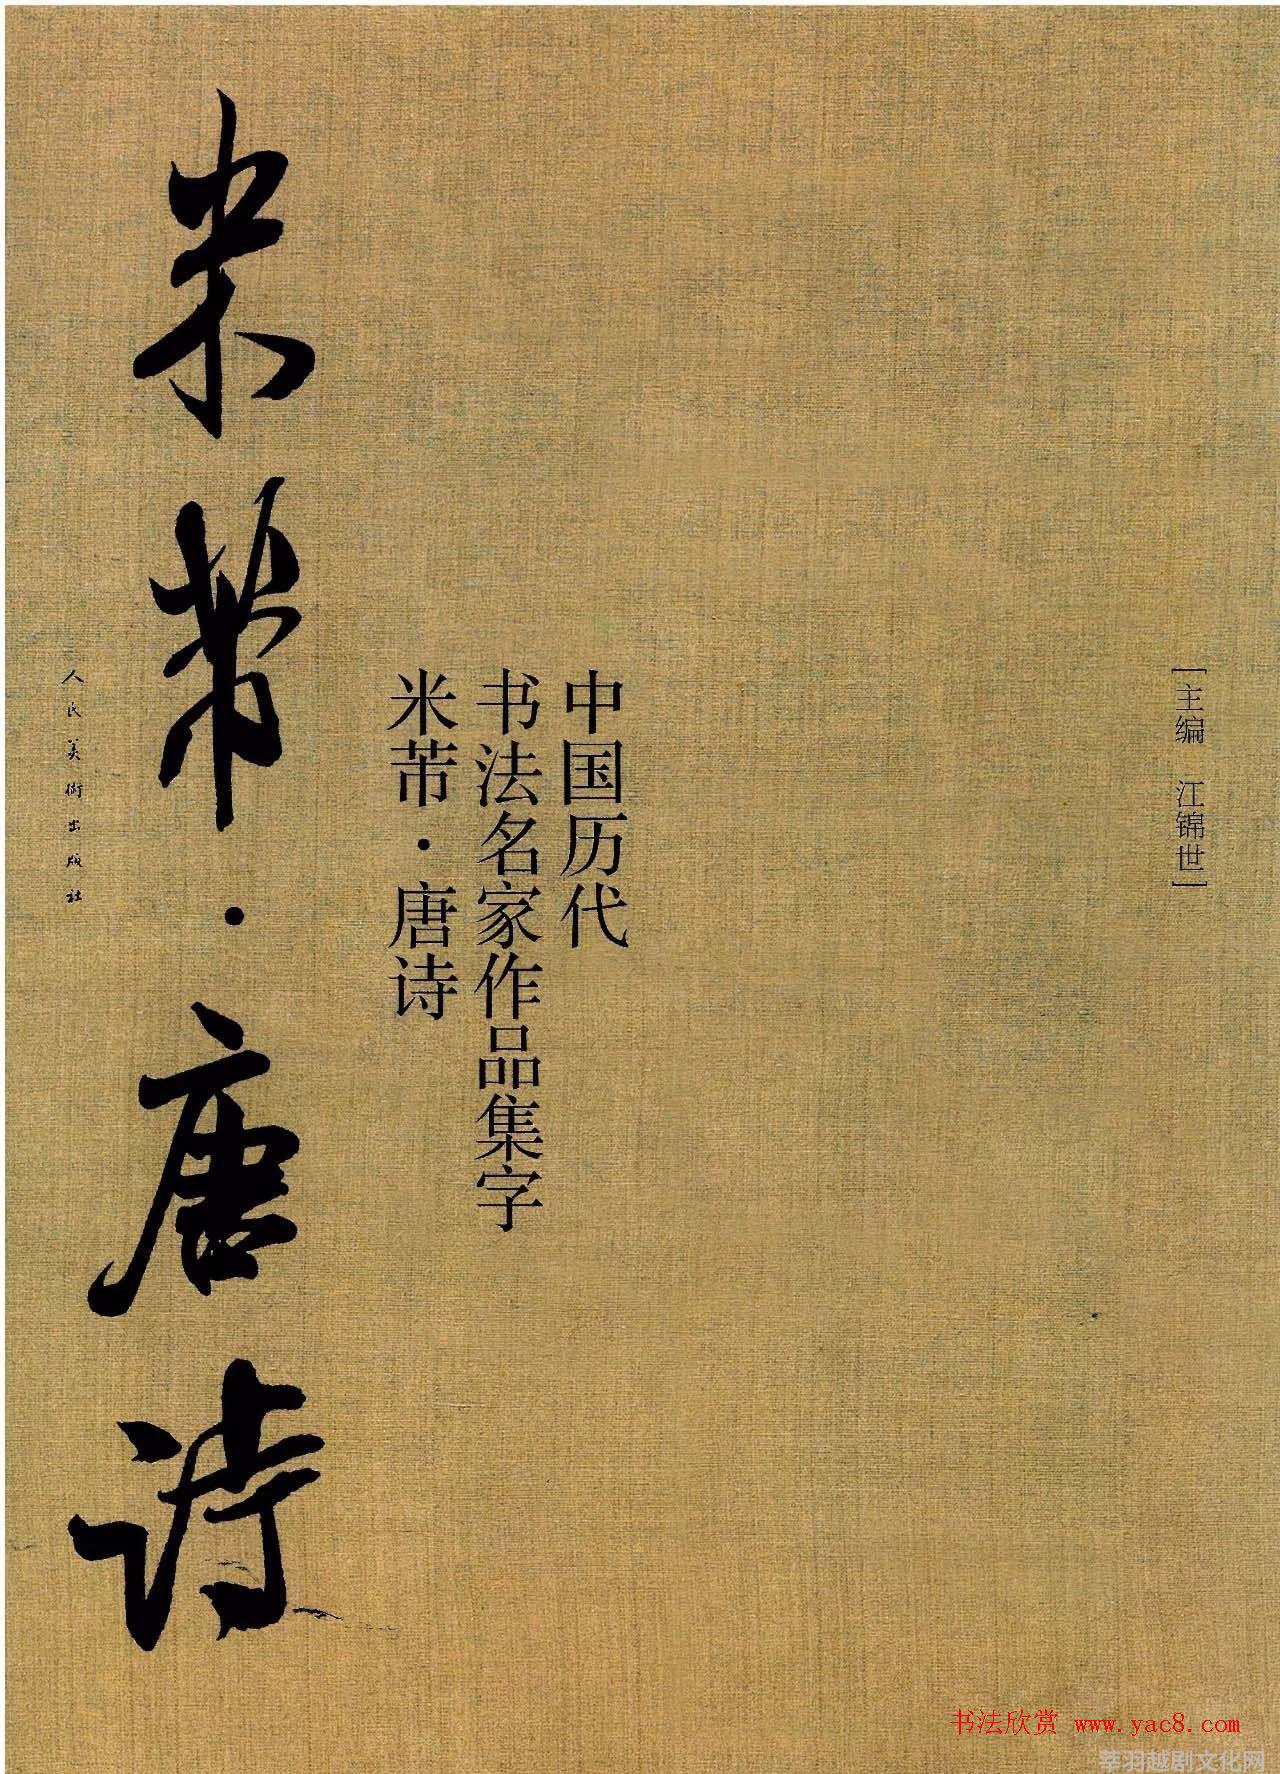 [主编 江锦世]
中国历代
书法名家作品集字
米芾·唐诗
米芾·唐诗
人民美術出版社
书法欣赏 www.yac8.com
莘羽越剧文化网